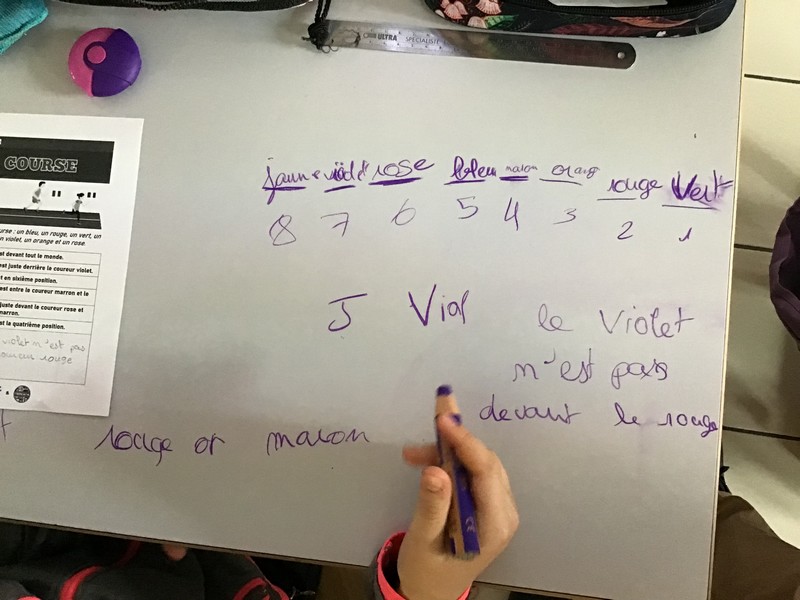 ULTRA SPECIALISTE
COURSE
urse : un bleu, un rouge, un vert, un
n violet, un orange et un rose.
est devant tout le monde.
est juste derrière le coureur violet.
t en sixième position.
est entre le coureur marron et le
juste devant le coureur rose et
marron.
st la quatrième position.
violet n'est pas
rouge
jaune violet rose bleu maron orang rouge Vert
8 7 6 5 4 3 2 1
J Viol
le Violet
n'est pas
devant le rouge
rouge or maron